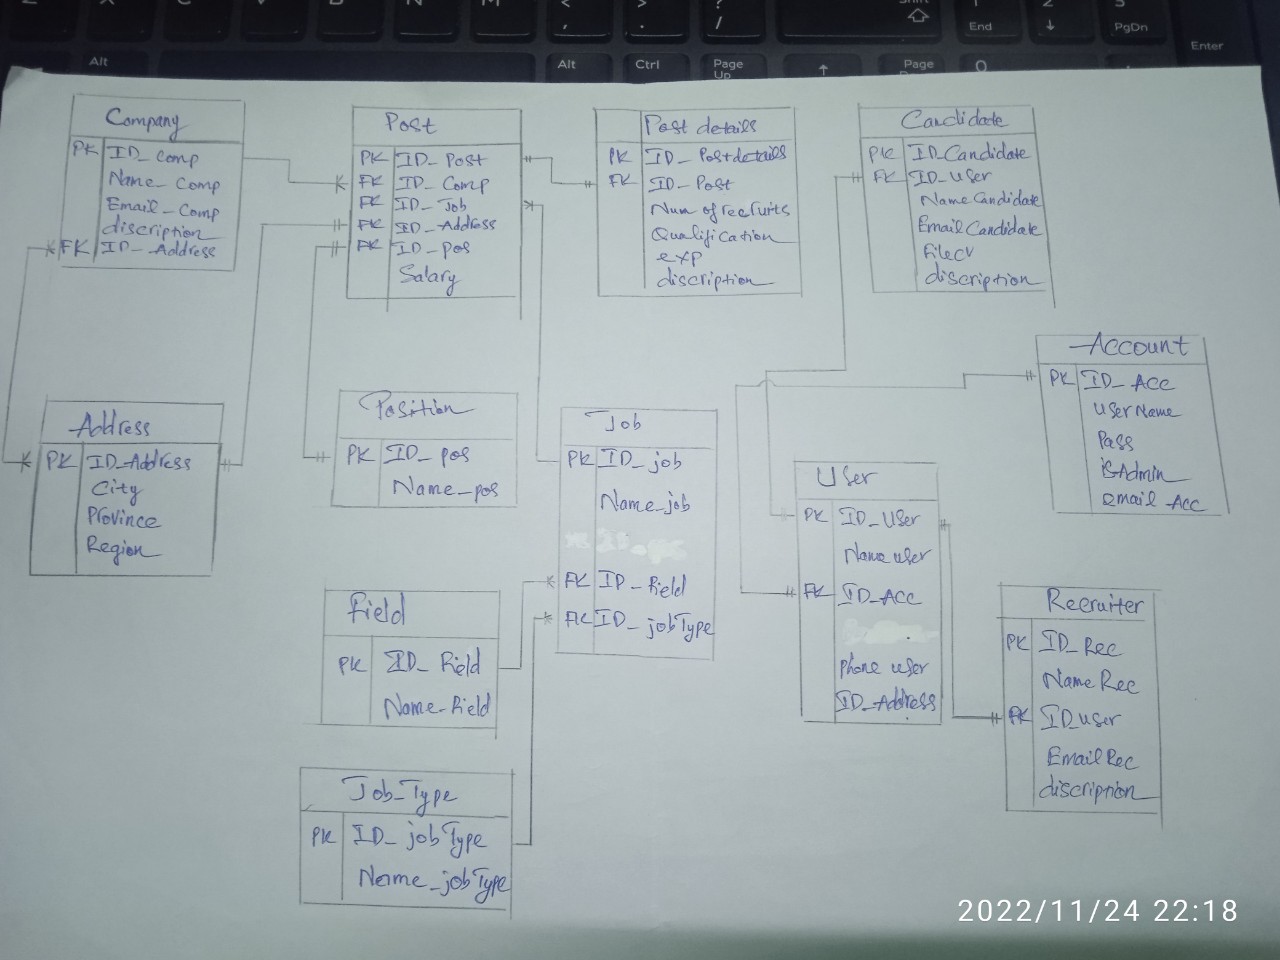 Alt
Alt
Ctrl
Page
Up
Page
End
PgDn
Enter
Company
PK ID_Comp
Name_Comp
Email_Comp
discription
FK ID_Address
Post
PK ID_Post
FK ID_Comp
FK ID_Job
FK ID_Address
FK ID_pos
Salary
Post details
PK ID_Postdetails
FK ID_Post
Num of recruits
Qualification
exp
discription
Candidate
PK ID_Candidate
FK ID_User
Name Candidate
Email Candidate
Filecv
discription
Account
PK ID_Acc
UserName
Pass
isAdmin
email_Acc
Address
PK ID_Address
City
Province
Region
Position
PK ID_pos
Name_pos
Job
PK ID_job
Name_job
FK ID_Field
FK ID_jobType
User
PK ID_User
Name user
FK ID_Acc
phone user
ID_Address
Field
PK ID_Field
Name_Field
Recruiter
PK ID_Rec
Name Rec
FK ID user
Email Rec
discription
Job_Type
PK ID_jobType
Name_jobType
2022/11/24 22:18